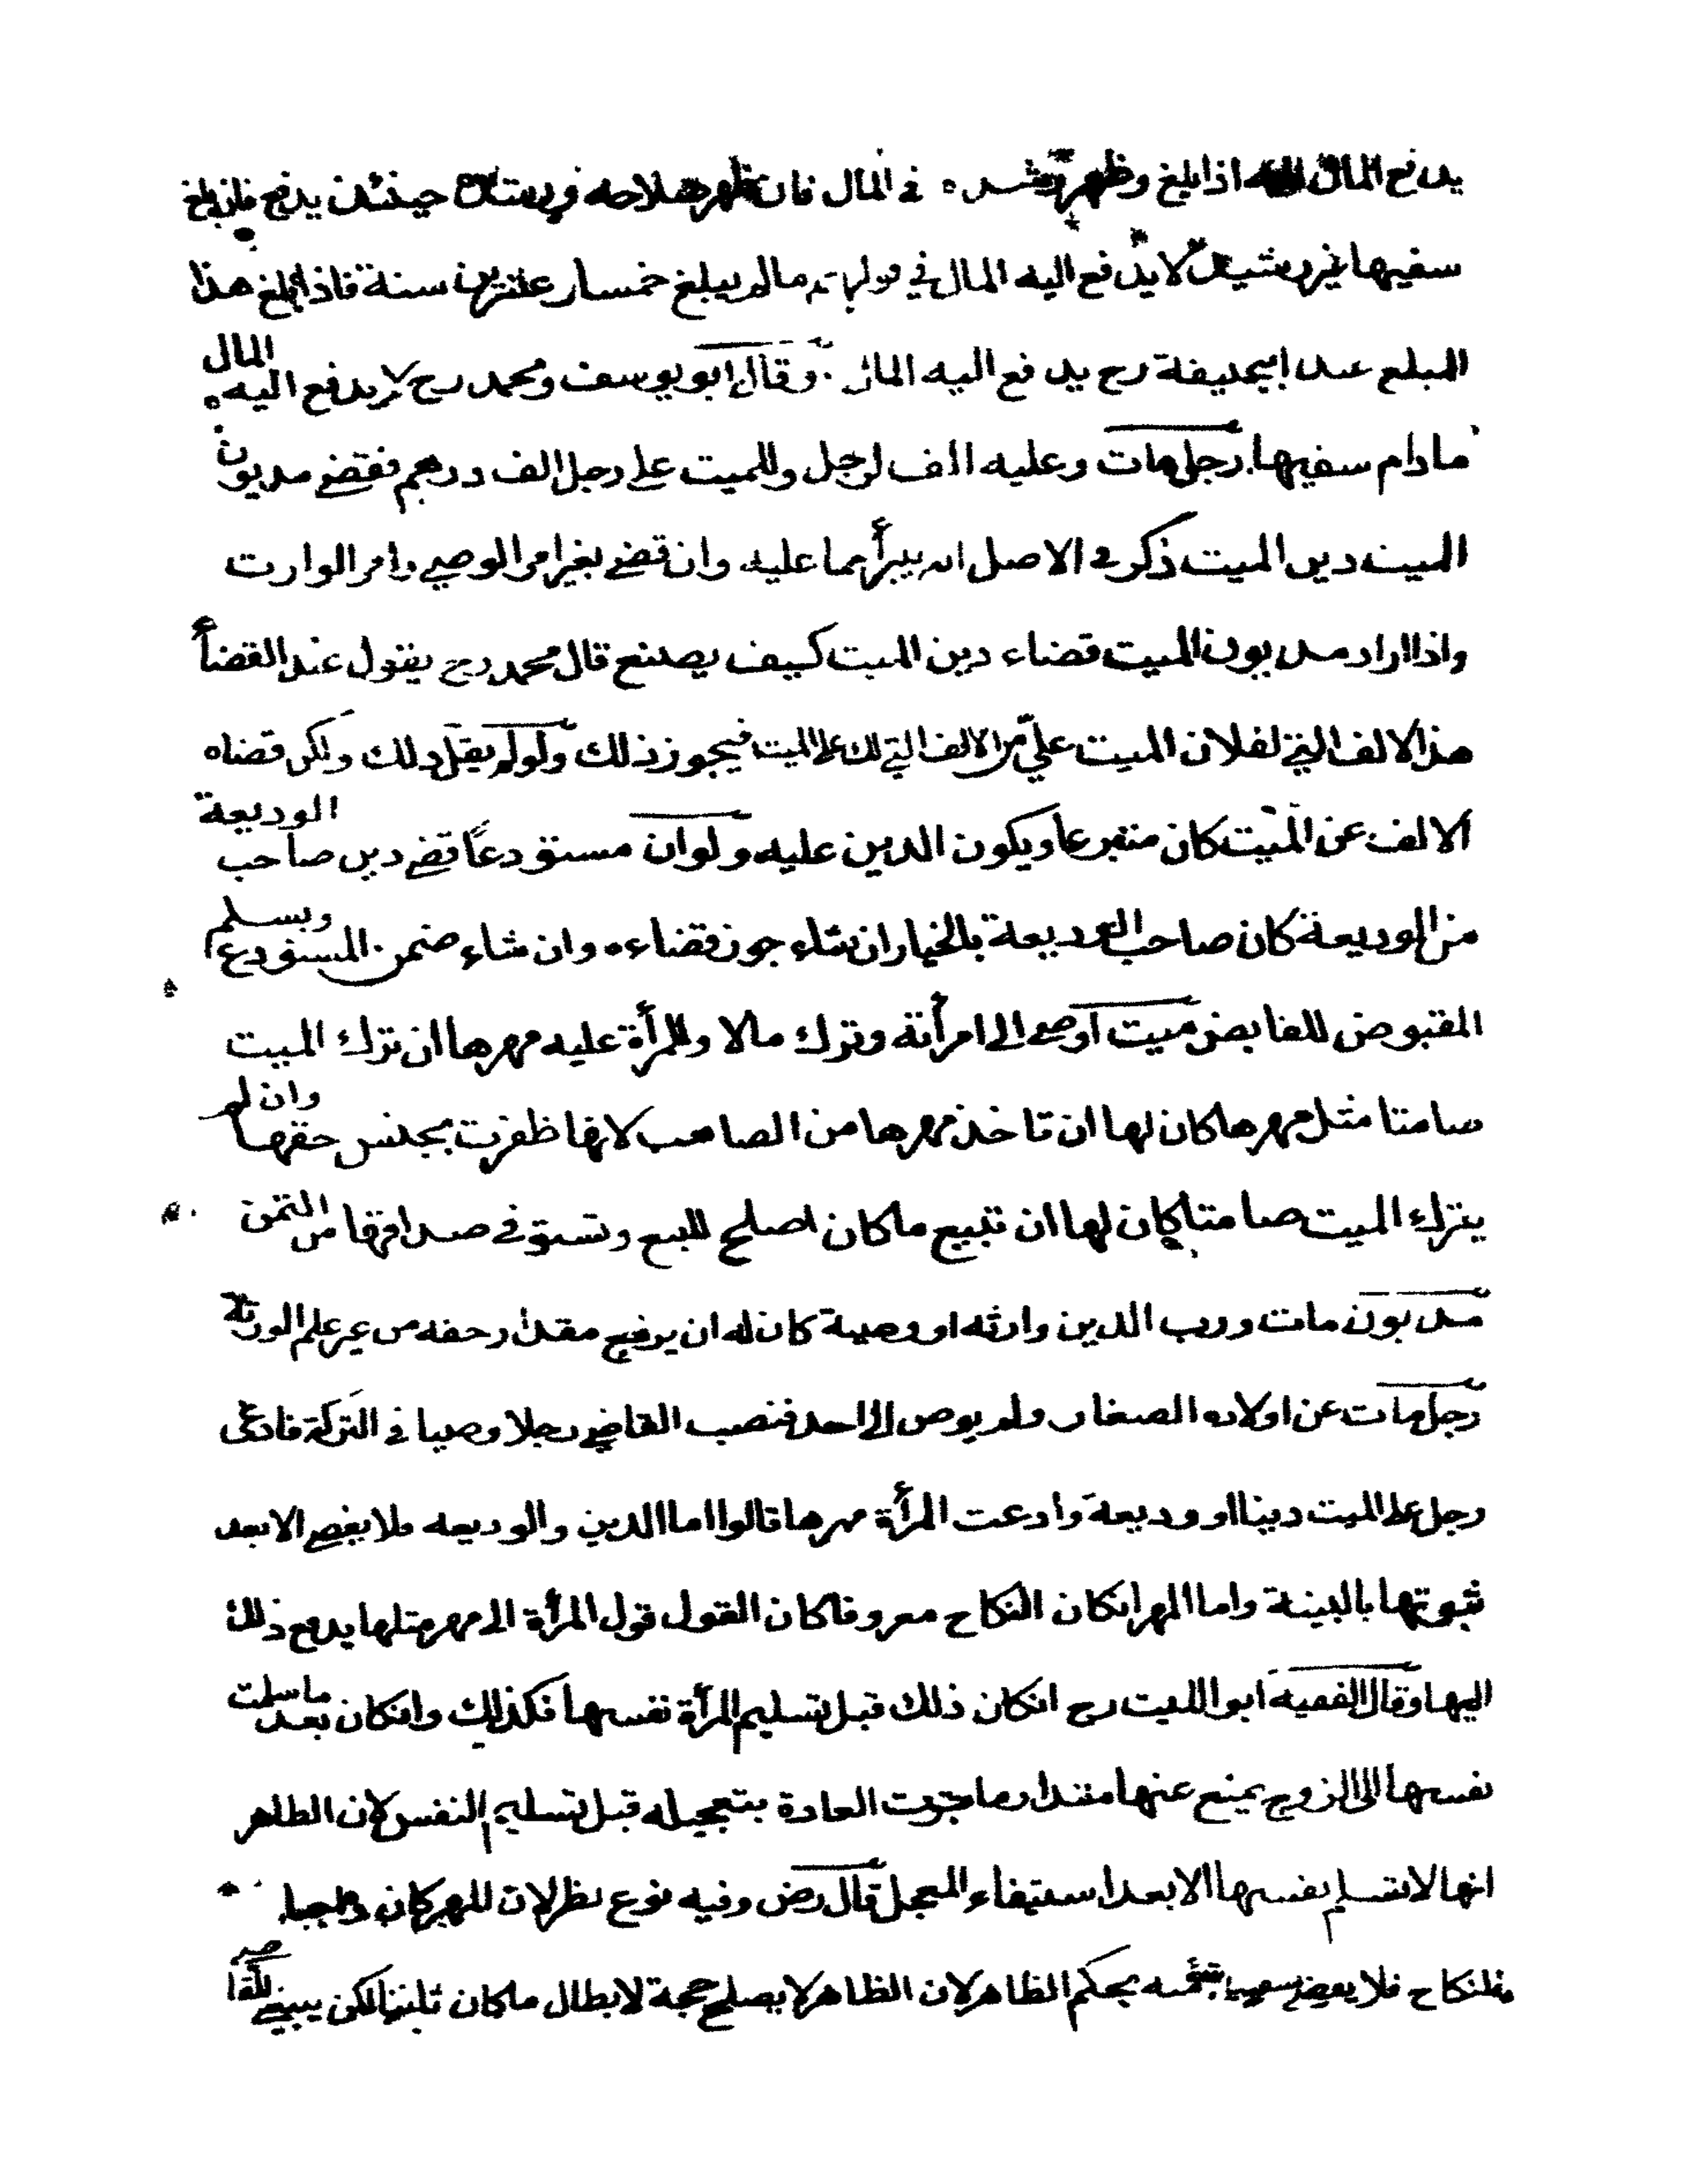 يدفع المال اليه اذا بلغ وظهر رشده في المال فان ظهر صلاحه ورشده حينئذ يدفع فان بلغ
سفيها غير رشيد لا يدفع اليه المال في قولهم مالم يبلغ خمسا وعشرين سنة فاذا بلغ هذا
المبلغ عند ابيحنيفة رح يدفع اليه المال وقال ابو يوسف ومحمد رح لا يدفع اليه المال
مادام سفيها رجل مات وعليه الف لرجل وللميت على رجل الف درهم فقضى مديون
الميت دين الميت ذكر في الاصل انه يبرأ مما عليه وان قضى بغير امر الوصي وامر الوارث
واذا اراد مديون الميت قضاء دين الميت كيف يصنع قال محمد رح يقول عند القضأ
هذا الالف التي لفلان الميت عليّ من الالف التي لك على الميت فيجوز ذلك ولو لم يقل ذلك ولكن قضاه
الالف عن الميت كان متبرعا ويكون الدين عليه ولو ان مستودعاً قضى دين صاحب الوديعة
من الوديعة كان صاحب الوديعة بالخيار ان شاء جوز قضاءه وان شاء ضمن المستودع ويسلم
المقبوض للقابض ميت اوصى الى امرأته وترك مالا وللمرأة عليه مهرها ان ترك الميت
صامتا مثل مهرها كان لها ان تاخذ مهرها من الصامت لانها ظفرت بجنس حقها وان لم
يترك الميت صامتا كان لها ان تبيع ماكان اصلح للبيع وتستوفي صداقها من الثمن
مديون مات ورب الدين وارثه او وصية كان له ان يرفع مقدار حقه من غير علم الورثة
رجل مات عن اولاده الصغار ولم يوص الى احد فنصب القاضي رجلا وصيا في التركة فادعى
رجل على الميت دينا او وديعة وادعت المرأة مهرها قالوا اما الدين والوديعه فلا يقضى الا بعد
ثبوتها بالبينة واما المهر ان كان النكاح معروفا كان القول قول المرأة الى مهر مثلها يدفع ذلك
اليها وقال الفقيه ابو الليث رح ان كان ذلك قبل تسليم المرأة نفسها فكذلك وان كان بعد ما سلمت
نفسها الى الزوج يمنع عنها مقدار ما جرت العادة بتعجيله قبل تسليم النفس لان الظاهر
انها لا تسلم نفسها الا بعد استيفاء المعجل قال رض وفيه نوع نظر لان المهر كان واجبا
بالنكاح فلا يقضى بسقوط شئ منه بحكم الظاهر لان الظاهر لا يصلح حجة لابطال ماكان ثابتا لكن ينبغي للقا